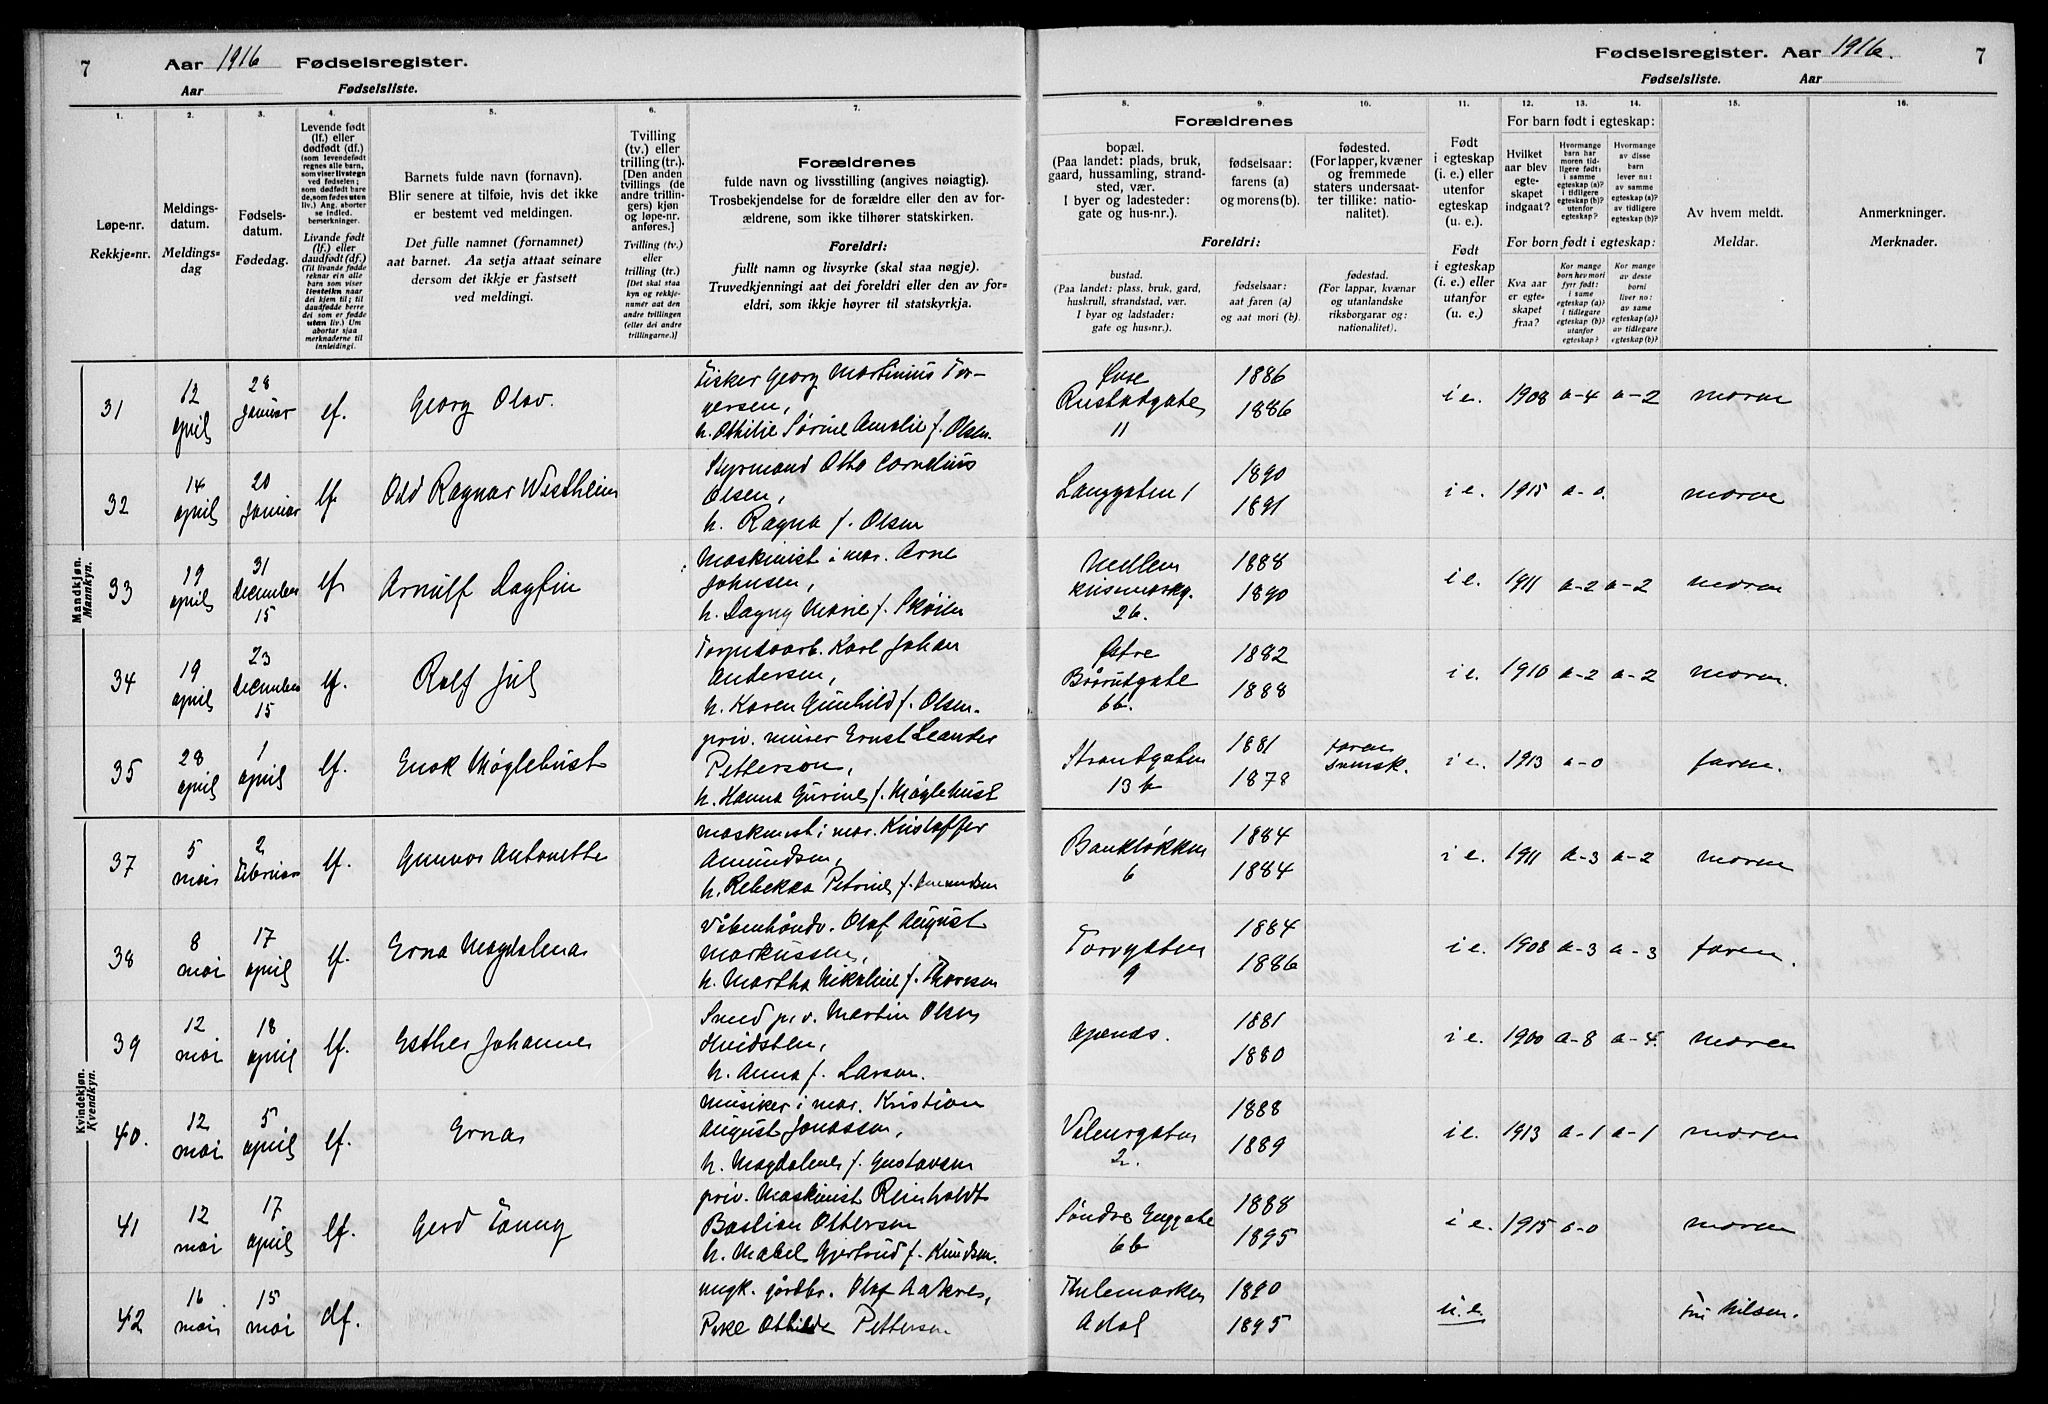 7 Aar 1916 Fødselsregister.
Aar Fødselsliste.
Fødselsregister. Aar 1916. 7
Fødselsliste. Aar
1.
Løpe-nr.
Rekkje=nr.
2.
Meldings-
datum.
Meldings=
dag
3.
Fødsels-
datum.
Fødedag.
4.
Levende født
(lf.) eller
dødfødt (df.)
(som levendefødt
regnes alle barn,
som viser livstegn
ved fødselen;
som dødfødt bare
de, som fødes uten
liv.) Ang. aborter
se indled.
bemerkninger.
Livande født
(lf.) eller
daudfødt (df.)
(Til livande fødde
reknar ein alle
barn som viser
livsteikn naar
dei kjem til; til
daudfødde berre
dei som er fødde
utan liv.) Um
abortar sjaa
merknaderne til
innleidingi.
5.
Barnets fulde navn (fornavn).
Blir senere at tilføie, hvis det ikke
er bestemt ved meldingen.
Det fulle namnet (fornamnet)
aat barnet. Aa setja attaat seinare
dersom det ikkje er fastsett
ved meldingi.
6.
Tvilling
(tv.) eller
trilling (tr.).
[Den anden
tvillings (de
andre trillin-
gers) kjøn
og løpe-nr.
anføres.]
Tvilling (tv.)
eller
trilling (tr.)
[Det skal staa
kyn og rekkje-
numer aat den
andre tvillingen
(eller dei andre
trillingarne.)]
7.
Forældrenes
fulde navn og livsstilling (angives nøiagtig).
Trosbekjendelse for de forældre eller den av for-
ældrene, som ikke tilhører statskirken.
Foreldri:
fullt namn og livsyrke (skal staa nøgje).
Truvedkjenningi aat dei foreldri eller den av for=
eldri, som ikkje høyrer til statskyrkja.
Forældrenes
8.
bopæl.
(Paa landet: plads, bruk,
gaard, hussamling, strand-
sted, vær.
I byer og ladesteder:
gate og hus-nr.).
9.
fødselsaar:
farens (a)
og morens (b).
10.
fødested.
(For lapper, kvæner
og fremmede
staters undersaat-
ter tillike: natio-
nalitet).
Foreldri:
bustad.
(Paa landet: plass, bruk, gard,
huskrull, strandstad, vær.
I byar og ladstader:
gate og hus=nr.).
fødselsaar:
aat faren (a)
og aat mori (b).
fødestad.
(For lappar, kvænar
og utanlandske
riksborgarar og:
nationalitet).
11.
Født
i egteskap
(i. e.) eller
utenfor
egteskap
(u. e.).
Født
i egteskap
(i. e.) eller
utanfor
(u. e.)
For barn født i egteskap:
12.
Hvilket
aar blev
egte-
skapet
indgaat?
13.
Hvormange
barn har
moren tid-
ligere født:
i samme
egteskap (a)?
i tidligere
egteskap (b)?
utenfor
egteskap?
14.
Hvormange
av disse
barn
lever nu:
av samme
egteskap (a)?
av tidligere
egteskap (b)?
For born født i egteskap:
Kva aar
er egte-
skapet
fraa?
Kor mange
born hev mori
fyrr født:
i same
egteskap (a)?
i tidlegare
egteskap (b)?
utanfor
egteskap?
Kor mange
av desse
borni
liver no:
av same
egteskap (a)?
av tidlegare
egteskap (b)?
15.
Av hvem meldt.
Meldar.
16.
Anmerkninger.
Merknader.
Mandkjøn.
Mannkyn.
31 12 april 28 Januar lf. Georg Olav. Fisker Georg Martinius Tor-
gersen,
h. Othilie Sørine Amalie f. Olsen. Rustadgate 11 1886 1886 i e. 1908 a-4 a-2 moren
32 14 april 20 Januar lf. Odd Ragnar Westheim Styrmand Otto Cornelius
Olsen,
h. Ragna f. Olsen Langgaten 1 1890 1891 i e. 1915 a-0. moren
33 19 april 31 December 15 lf. Arnulf Dagfin Maskinist i mar. Arne
Johnsen,
h. Dagny Marie f. Skøien Mellem 26. 1888 1890 i e. 1911 a-2 a-2 moren
34 19 april 23 December 15 lf. Rolf Jul Torpedoarb. Karl Johan
Andersen,
h. Karen Gunhild f. Olsen. Østre
6b. 1882 1888 i e. 1910 a-2 a-2 moren.
35 28 april 1 april lf. Enok Møglehust priv. Ernst Leander
Petterson,
h. Hanna Gurine f. Møglehust Strandgaten
13 b 1881 1878 faren
svensk. i e. 1913 a-0 faren.
Kvindekjøn.
Kvendkyn.
37 5 mai 2 Februar lf. Gunvor Antonette maskinist i mar. Kristoffer
Amundsen,
h. Rebekka Petrine f. Amundsen Bankløkken
6 1884 1884 i e. 1911 a-3 a-2 moren
38 8 mai 17 april lf. Erna Magdalena Olaf August
Markussen,
h. Martha Nikoline f. Thoresen Torvgaten
9 1884 1886 i e. 1908 a-3 a-3 faren.
39 12 mai 18 april lf. Esther Johanne Smed prv. Martin Olsen
Hvidsten,
h. Anna f. Larsen. Apenes. 1881 1880 i e. 1900 a-8 a-4. moren
40. 12 mai 5 april lf. Erna Musiker i mar. Kristian
August Jonassen,
h. Magdalene f. Gustavsen
2. 1888 1889 i e. 1913 a-1 a-1 moren
41 12 mai 17 april lf. Gerd Fanny priv. Maskinist Reinholdt
Bastian Ottersen
h. Mabel Gjertrud f. Knudsen. Søndre Enggate
6b 1888 1895 i e. 1915 a-0 moren
42 16. mai 15 mai df. ungk. jordbr. Olaf Aakres,
Pike Othilde Pettersen Thulemarken
Adal 1890 1895 u. e. Fru Nilsen.